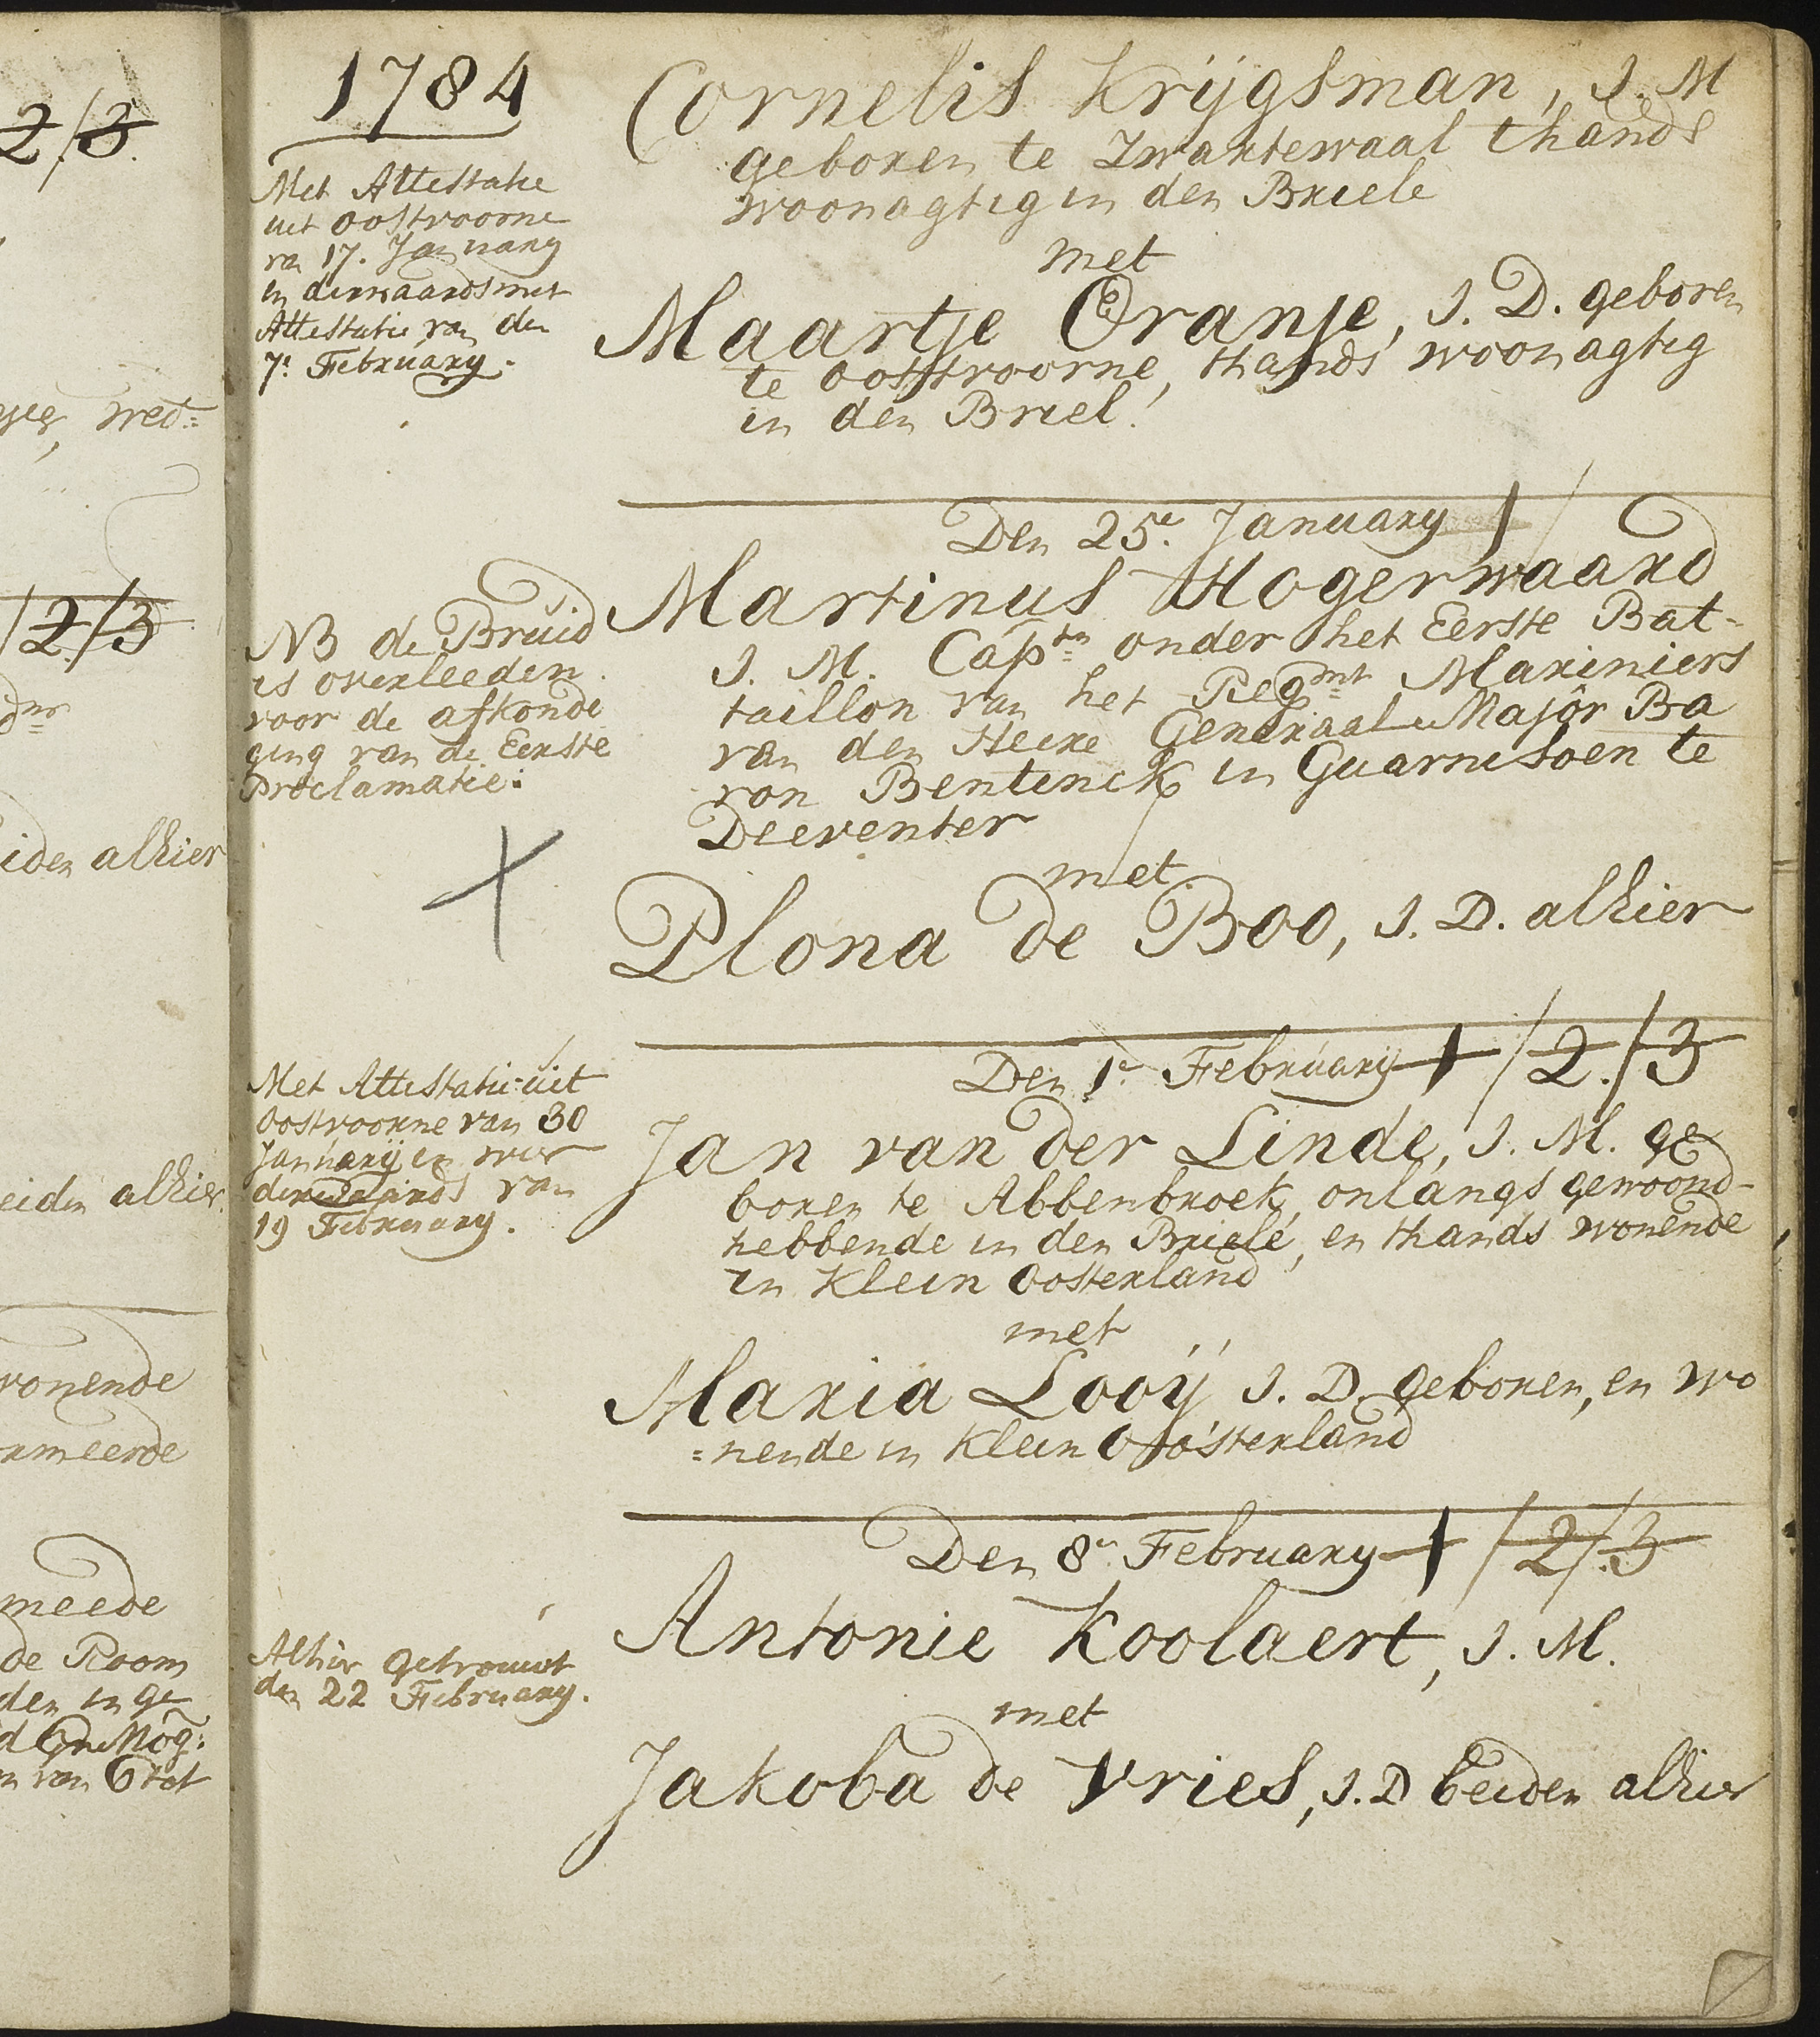 2/3.
wed=
/2/3
iden alhier
eiden alhier.
wonende
rmeerde
meede
de Room
den in ge
d Gr. Mog:
n van 6 tot
1784
Met Attestatie
uit oostvoorne
van 17. January
en derwaards met
Attestatie van den
7e February.
Cornelis Krijgsman, J. M
geboren te Zwartewaal thands
woonagtig in den Briele
met
Maartje Oranje, J. D. geboren
te oostvoorne, thands woonagtig
in den Briel.
Den 25e January 1/
NB de Bruid
is overleeden
voor de afkondi
ging van de Eerste
Proclamatie.
Martinus Hogerwaard
J. M. Captn onder het Eerste Bat-
taillon van het Regmt Mariniers
van den Heere Generaal Major Ba
ron Bentinck in Guarnisoen te
Deeventer
met
Plona de Boo, J. D. alhier
Den 1e February 1/2./3
Met Attestatie uit
Oostvoorne van 30
January en weer
derwaards van
19 February.
Jan van der Linde, J. M. ge
boren te Abbenbroek, onlangs gewoond-
hebbende in den Briele, en thands wonende
in Klein Oosterland
met
Maria Looÿ J. D. geboren, en wo
=nende in Klein Oosterland
Den 8e February 1/2/.3
Alhier getrouwt
den 22 February.
Antonie Koolaert, J. M.
met
Jakoba de Vries, J. D beiden alhier